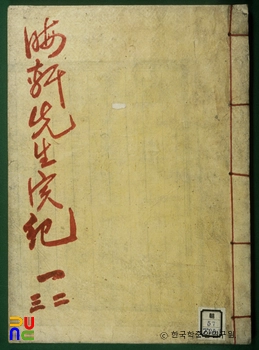 晦軒先生実紀 一二三
ⓒ 한국학중앙연구원